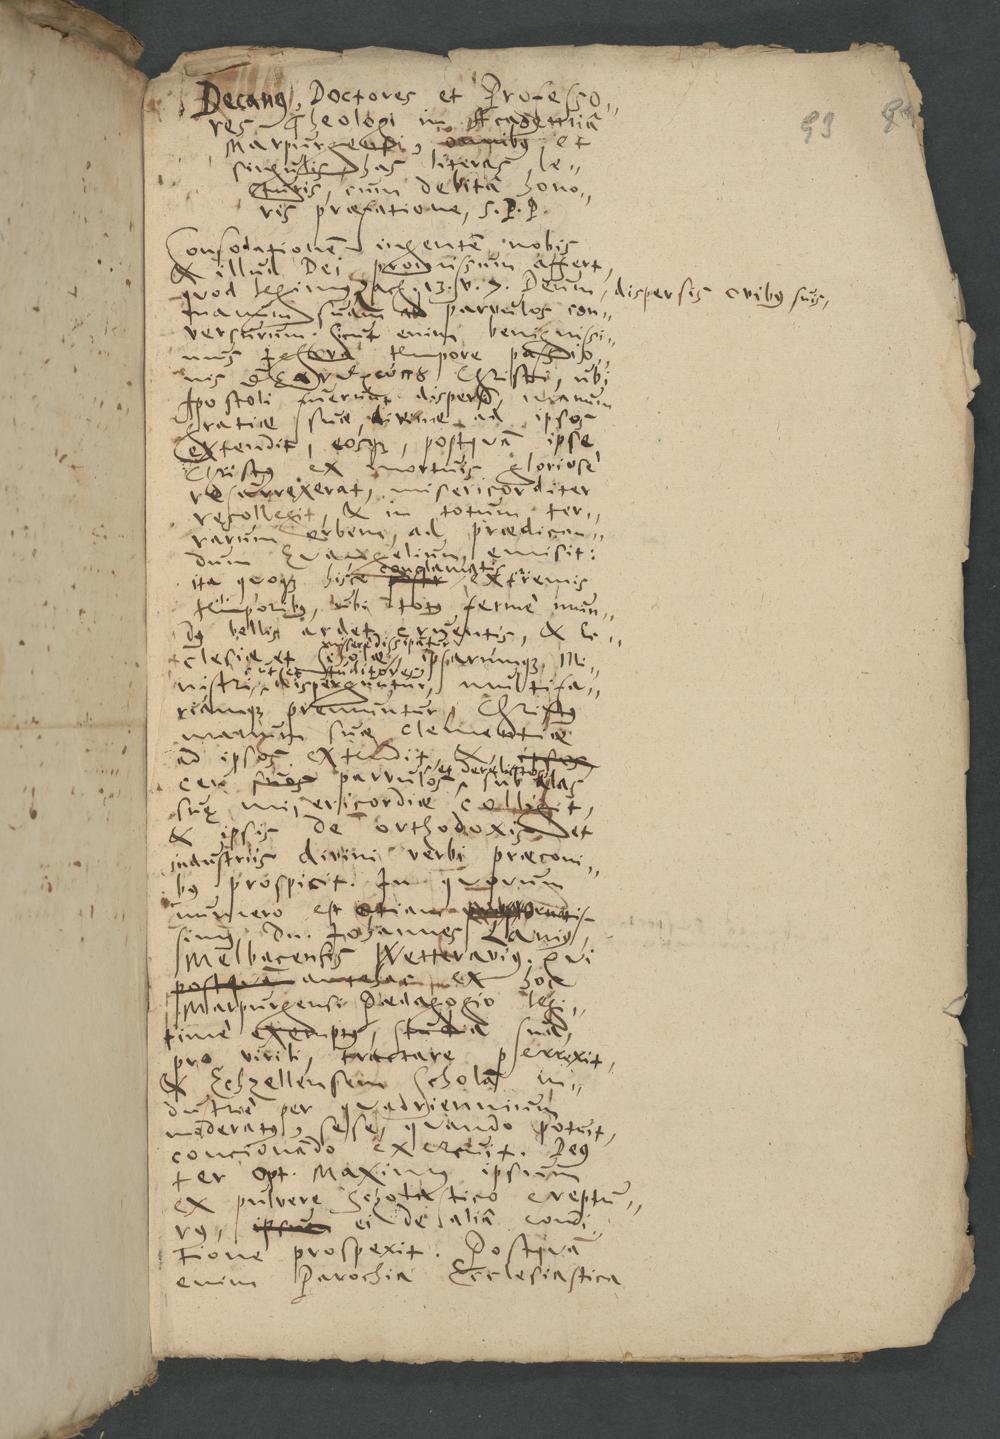 93
Decanus, Doctores et Professo„
res Theologi in Academiâ
Marpurgensi, omnibus et
singulis has literas le„
cturis, cum debitâ hono„
ris præfatione, S. P. P.
Consolationem ingentem nobis
& illud Dei promissum affert,
quod legimus Zach. 13. v. 7. Deum, dispersis ovibus suis,
manum suam ad parvulos con„
versurum. Sicut enim benignissi„
mus tempore passio„
nis Christi, ubi
Apostoli fuerunt dispersi, manum
gratiæ suæ divinæ ad ipsos
extendit, eosque, postquam ipse
Christus ex mortuis gloriosè
resurrexerat, misericorditer
recollegit, & in totum ter„
rarum orbem, ad prædican„
dum Evangelium, emisit:
ita quoque hisce conclamatis extremis
temporibus, ubi totus fermè mun„
dus bellis ardet cruentis, & Ec„
clesiæ et Scholæ miserè dissipantur, ipsarumque Mi„
nistri, cum et Auditores disperguntur, multifa„
riamque premuntur, Christus
manum suæ clementiæ
ad ipsos extendit, & ipsos
ceu suos parvulos et derelictos, sub alas
suæ misericordiæ colligit,
& ipsis de orthodoxis et
industriis divini verbi præconi„
bus prospicit. In quorum
numero est etiam
simus Dn. Johannes Lanius,
Melbacensis Wetteravius. Qui
postquam antehac ex hoc
Marpurgensi Pædagogio legi„
timè exemptus, studia sua,
pro virili, tractare perrexit,
& Echzellensem Scholam in„
dustriè per quadriennium
moderatus, sese, quando potuit,
concionando exercuit. Deus
ter Opt. Maximus ipsum
ex pulvere scholastico erepturus„
rus, ipsum ei de aliâ condi„
tione prospexit. Postquam
enim Parochia Ecclesiastica